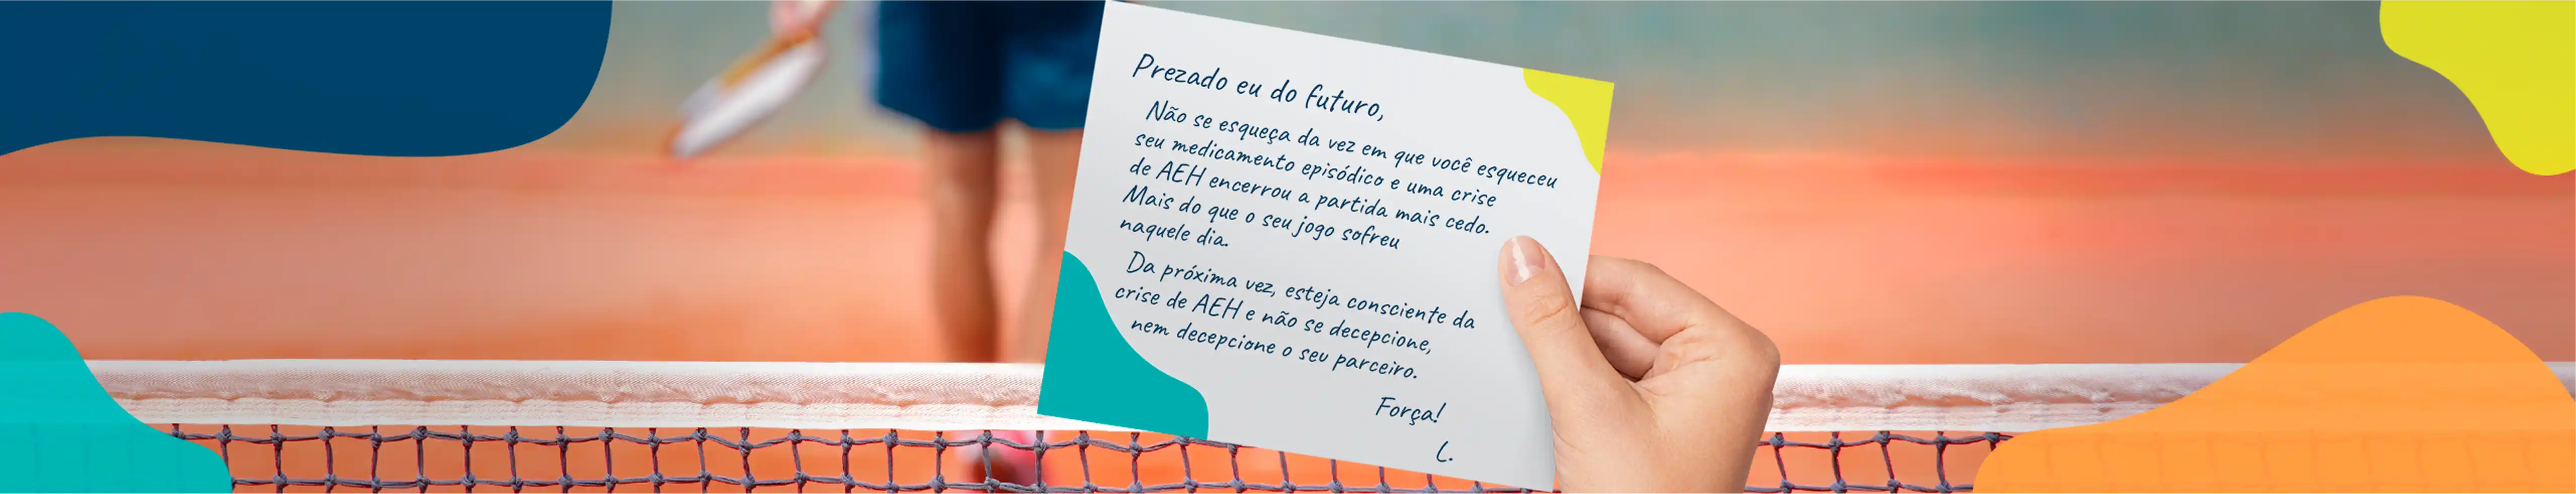 Prezado eu do futuro,
Não se esqueça da vez em que você esqueceu
seu medicamento episódico e uma crise
de AEH encerrou a partida mais cedo.
Mais do que o seu jogo sofreu
naquele dia.
Da próxima vez, esteja consciente da
crise de AEH e não se decepcione,
nem decepcione o seu parceiro.
Força!
L.